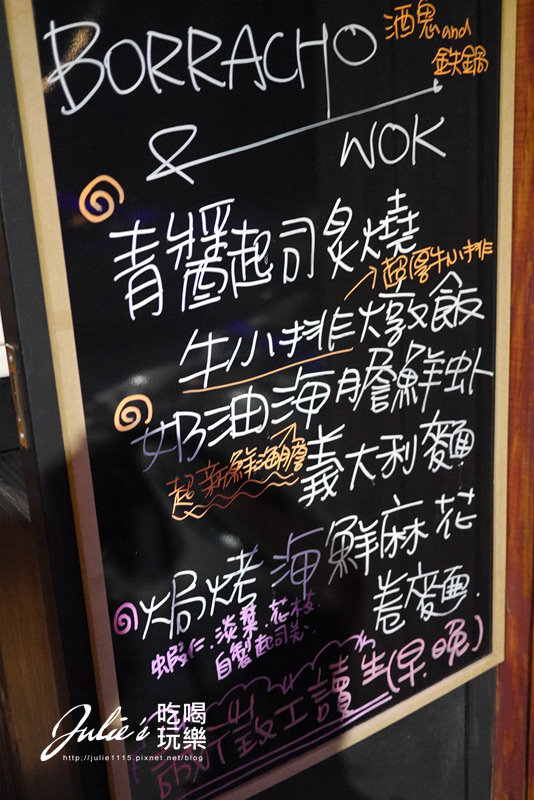 BORRACHO
酒鬼and
鉄鍋
& WOK
青醬起司炙燒
超厚牛小排
牛小排燉飯
奶油海膽鮮虾
超新鮮海膽
義大利麵
焗烤海鮮麻花
卷麵.
蝦仁.淡菜.花枝
自製起司美.
工讀生(早.晚)
Julie's 吃喝
玩樂
http://julie1115.pixnet.net/blog